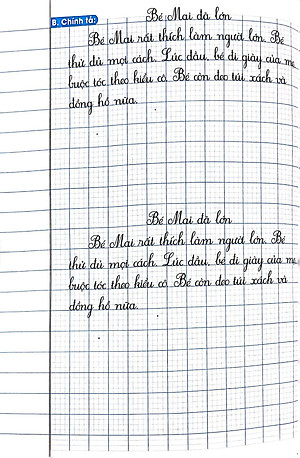 B. Chính tả:
Bé Mai đã lớn
Bé Mai rất thích làm người lớn. Bé
thử đủ mọi cách. Lúc đầu, bé đi giày của mẹ,
buộc tóc theo kiểu cô. Bé còn đeo túi xách và
đồng hồ nữa.
Bé Mai đã lớn
Bé Mai rất thích làm người lớn. Bé
thử đủ mọi cách. Lúc đầu, bé đi giày của mẹ,
buộc tóc theo kiểu cô. Bé còn đeo túi xách và
đồng hồ nữa.